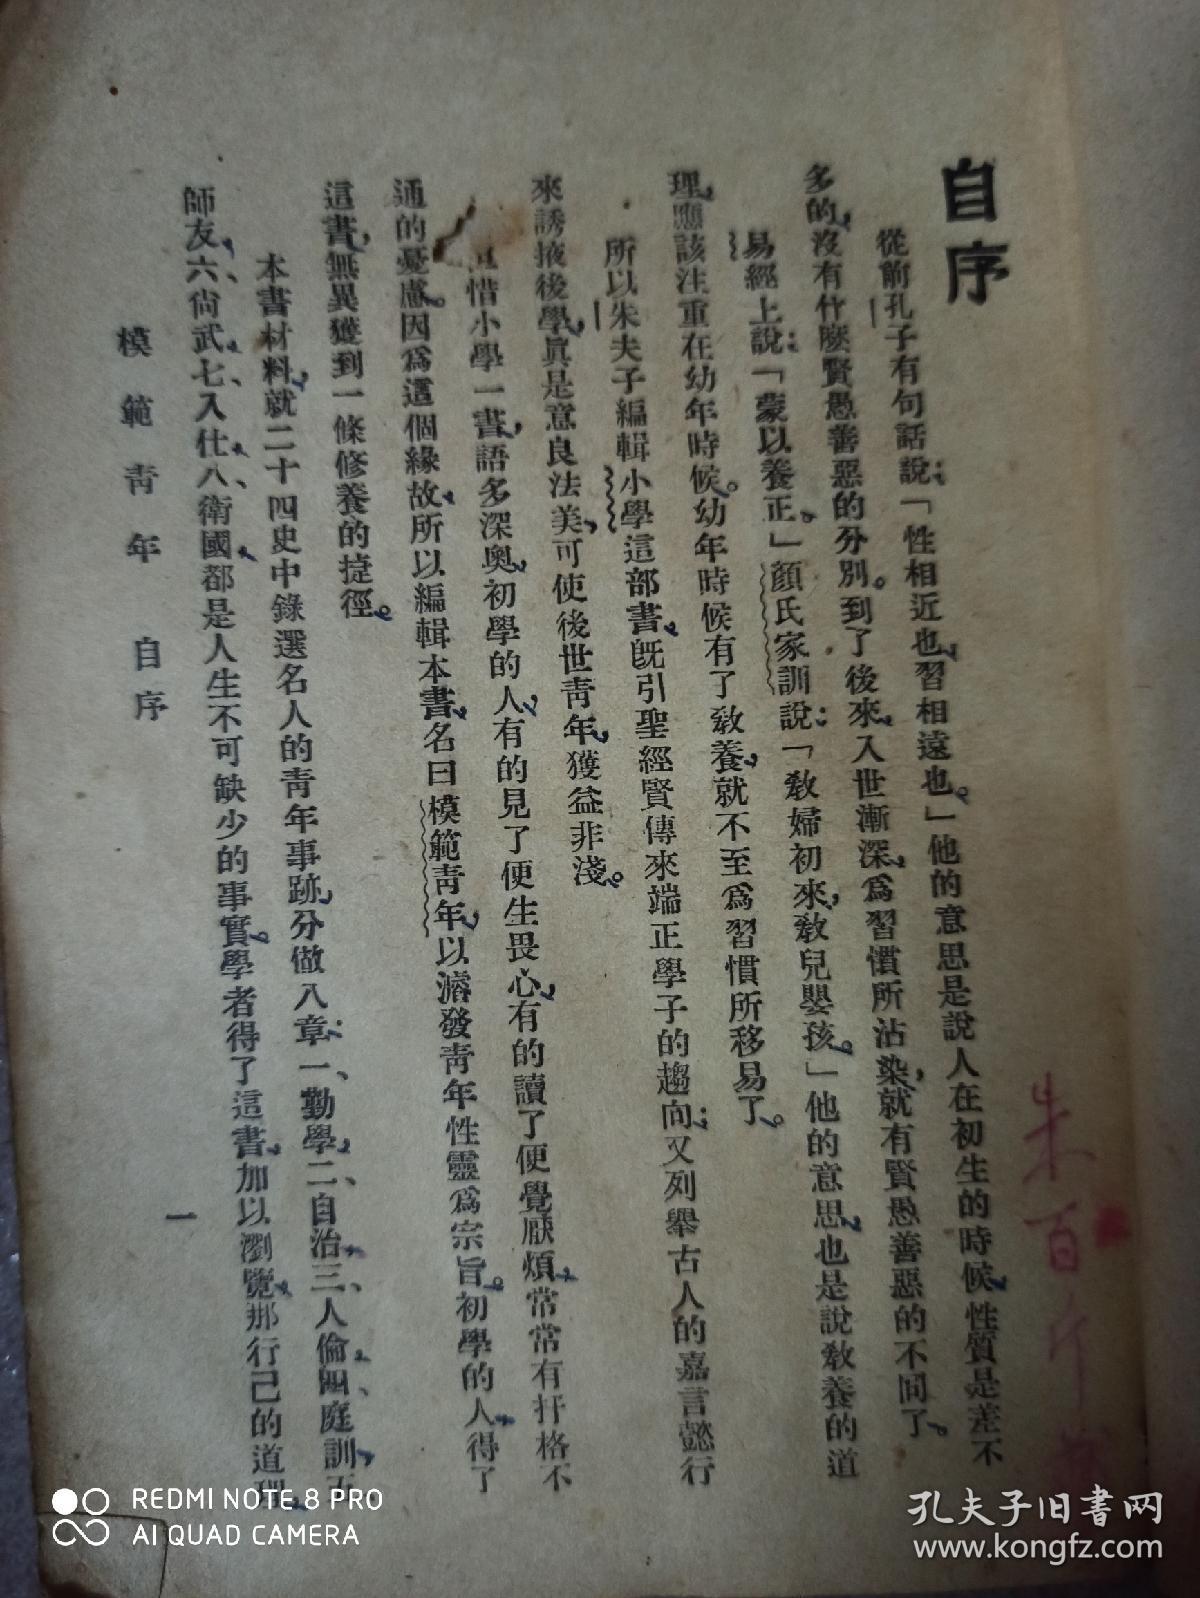 自序
從前孔子有句話說:「性相近也,習相遠也。」他的意思是說人在初生的時候,性質是差不
多的,沒有什麼賢愚善惡的分別。到了後來,入世漸深,爲習慣所沾染,就有賢愚善惡的不同了。
易經上說:「蒙以養正。」顏氏家訓說:「敎婦初來,敎兒嬰孩。」他的意思,也是說敎養的道
理,應該注重在幼年時候。幼年時候有了敎養,就不至爲習慣所移易了。
所以朱夫子編輯小學這部書,旣引聖經賢傳來端正學子的趨向;又列舉古人的嘉言懿行
來誘掖後學,眞是意良法美,可使後世靑年,獲益非淺。
惜小學一書,語多深奧,初學的人,有的見了便生畏心,有的讀了便覺厭煩,常常有扞格不
通的憂慮。因爲這個緣故,所以編輯本書,名曰模範靑年,以濬發靑年性靈爲宗旨。初學的人,得了
這書,無異獲到一條修養的捷徑。
本書材料,就二十四史中錄選名人的靑年事跡,分做八章:一、勤學,二、自治,三、人倫,四、庭訓,五、
師友,六、尙武,七、入仕,八、衛國,都是人生不可缺少的事實。學者得了這書,加以瀏覽,那行己的道理,
模範靑年 自序
一
朱百
REDMI NOTE 8 PRO
AI QUAD CAMERA
孔夫子旧书网
www.kongfz.com